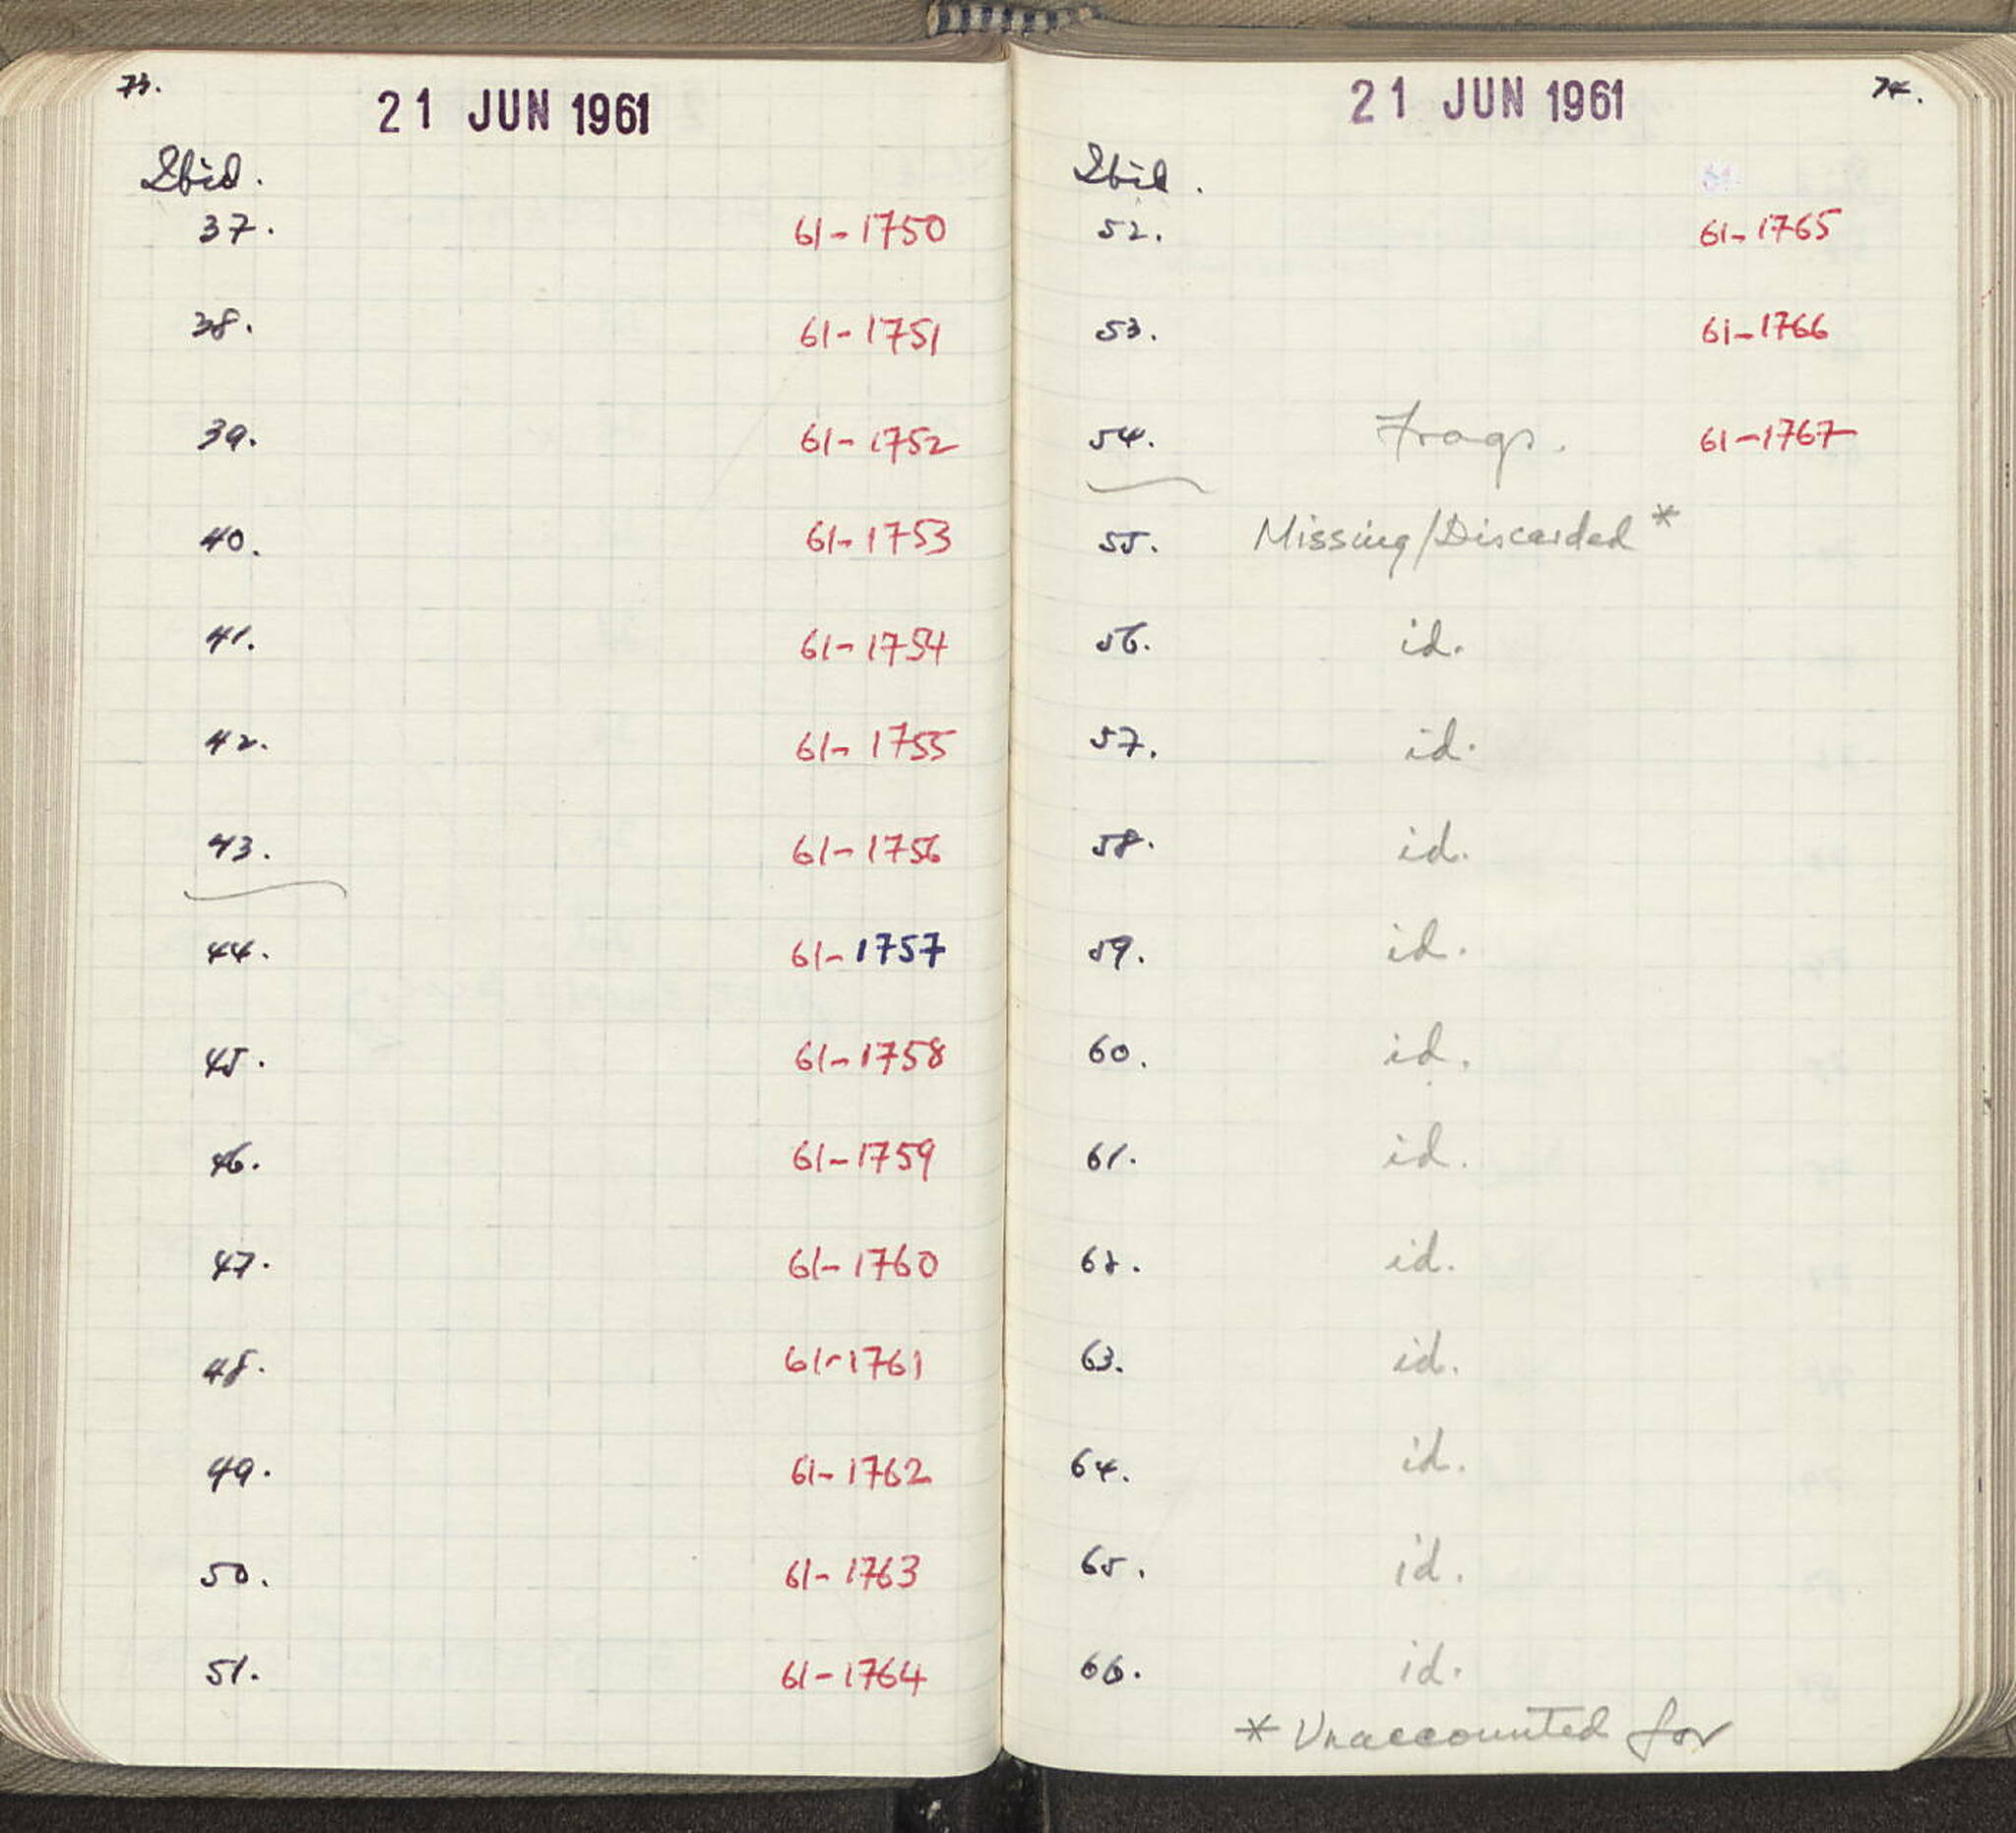 73.
21 JUN 1961
Ibid.
37. 61-1750
38. 61-1751
39. 61-1752
40. 61-1753
41. 61-1754
42. 61-1755
43. 61-1756
44. 61-1757
45. 61-1758
46. 61-1759
47. 61-1760
48. 61-1761
49. 61-1762
50. 61-1763
51. 61-1764
21 JUN 1961 74.
Ibid.
52. 61-1765
53. 61-1766
54. Frags. 61-1767
55. Missing/Discarded *
56. id.
57. id.
58. id.
59. id.
60. id.
61. id.
62. id.
63. id.
64. id.
65. id.
66. id.
* Unaccounted for